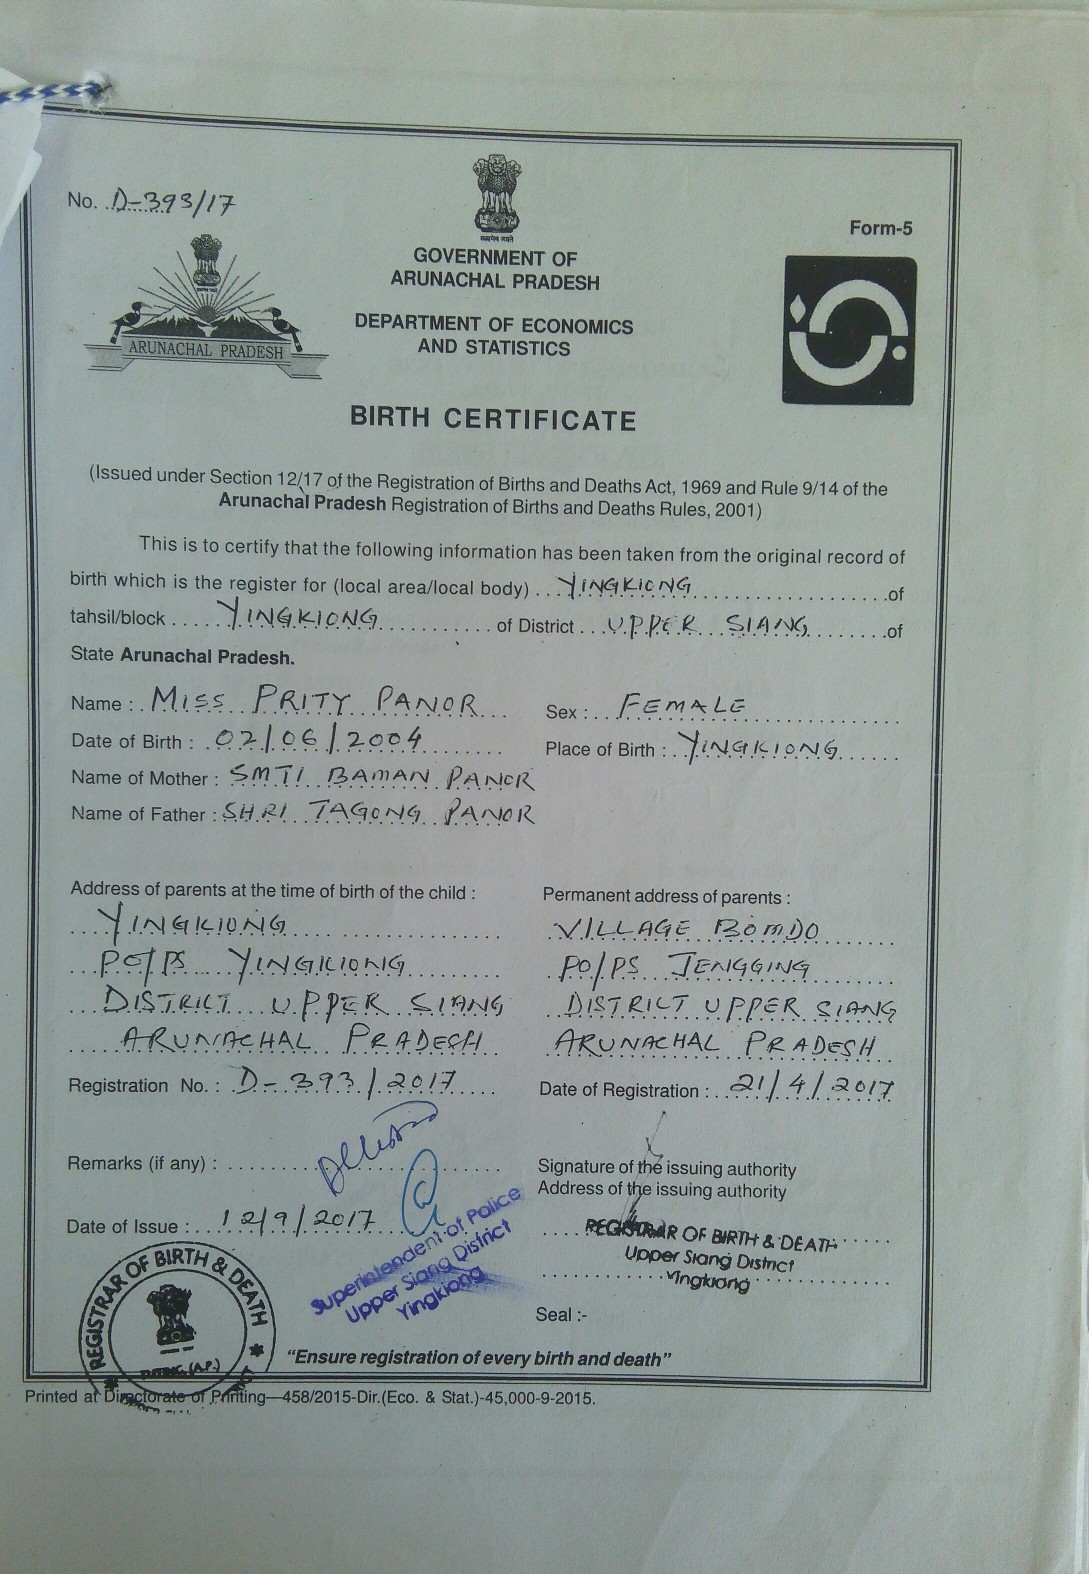 No. D-393/17
सत्यमेव जयते
Form-5
GOVERNMENT OF
ARUNACHAL PRADESH
ARUNACHAL PRADESH
DEPARTMENT OF ECONOMICS
AND STATISTICS
BIRTH CERTIFICATE
(Issued under Section 12/17 of the Registration of Births and Deaths Act, 1969 and Rule 9/14 of the
Arunachal Pradesh Registration of Births and Deaths Rules, 2001)
This is to certify that the following information has been taken from the original record of
birth which is the register for (local area/local body) YINGKIONG of
tahsil/block YINGKIONG of District UPPER SIANG of
State Arunachal Pradesh.
Name : MISS PRITY PANOR
Sex : FEMALE
Date of Birth : 02/06/2004
Place of Birth : YINGKIONG
Name of Mother : SMTI BAMAN PANOR
Name of Father : SHRI TAGONG PANOR
Address of parents at the time of birth of the child :
YINGKIONG
PO/PS YINGKIONG
DISTRICT UPPER SIANG
ARUNACHAL PRADESH
Permanent address of parents :
VILLAGE BOMDO
PO/PS JENGGING
DISTRICT UPPER SIANG
ARUNACHAL PRADESH
Registration No. : D-393/2017
Date of Registration : 21/4/2017
Remarks (if any) :
Signature of the issuing authority
Address of the issuing authority
Date of Issue : 12/9/2017
Superintendent of Police
Upper Siang District
Yingkiong
REGISTRAR OF BIRTH & DEATH
Upper Siang District
Yingkiong
Seal :-
REGISTRAR OF BIRTH & DEATH
(A.P.)
“Ensure registration of every birth and death”
Printed at Directorate of Printing—458/2015-Dir.(Eco. & Stat.)-45,000-9-2015.